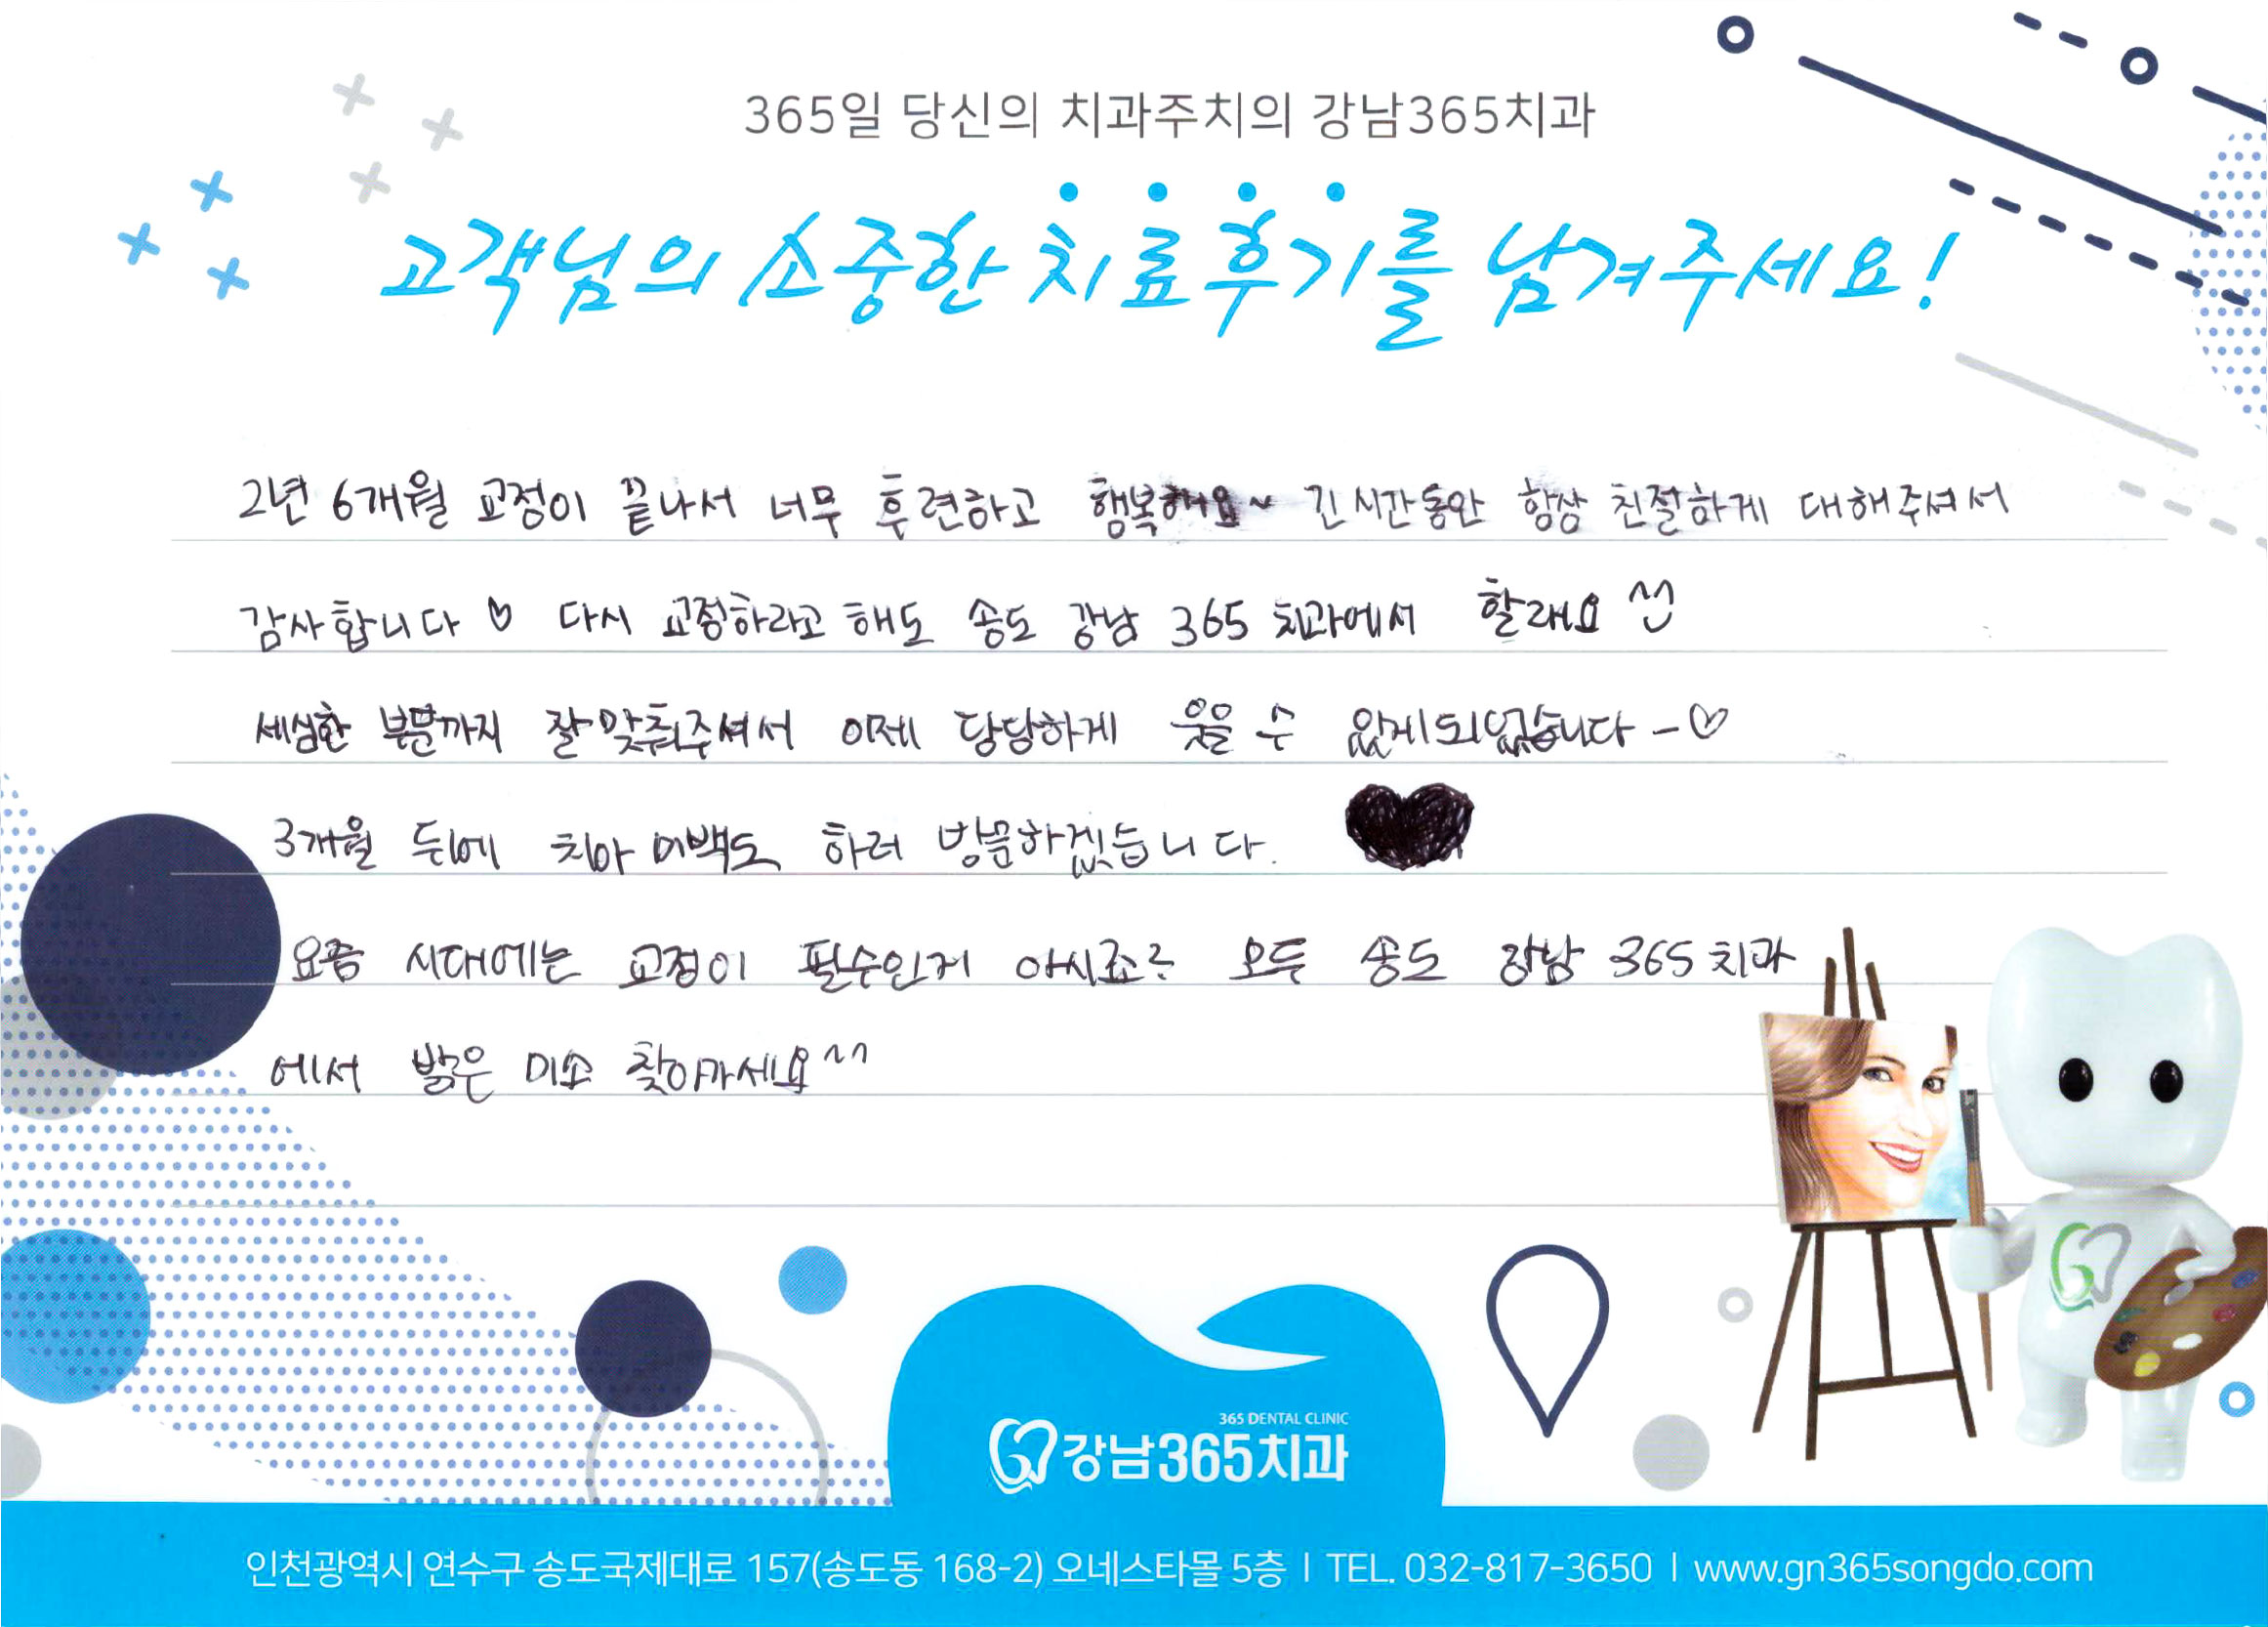 365일 당신의 치과주치의 강남365치과
고객님의 소중한 치료후기를 남겨주세요!
2년 6개월 교정이 끝나서 너무 후련하고 행복해요~ 긴 시간동안 항상 친절하게 대해주셔서
감사합니다 ♡ 다시 교정하라고 해도 송도 강남 365 치과에서 할래요 ^^
세심한 부분까지 잘 맞춰주셔서 이제 당당하게 웃을 수 있게되었습니다 - ♡
3개월 뒤에 치아 미백도 하러 방문하겠습니다. ♥
요즘 시대에는 교정이 필수인거 아시죠? 모두 송도 강남 365 치과
에서 밝은 미소 찾아가세요^^
365 DENTAL CLINIC
강남365치과
인천광역시 연수구 송도국제대로 157(송도동 168-2) 오네스타몰 5층 | TEL. 032-817-3650 | www.gn365songdo.com